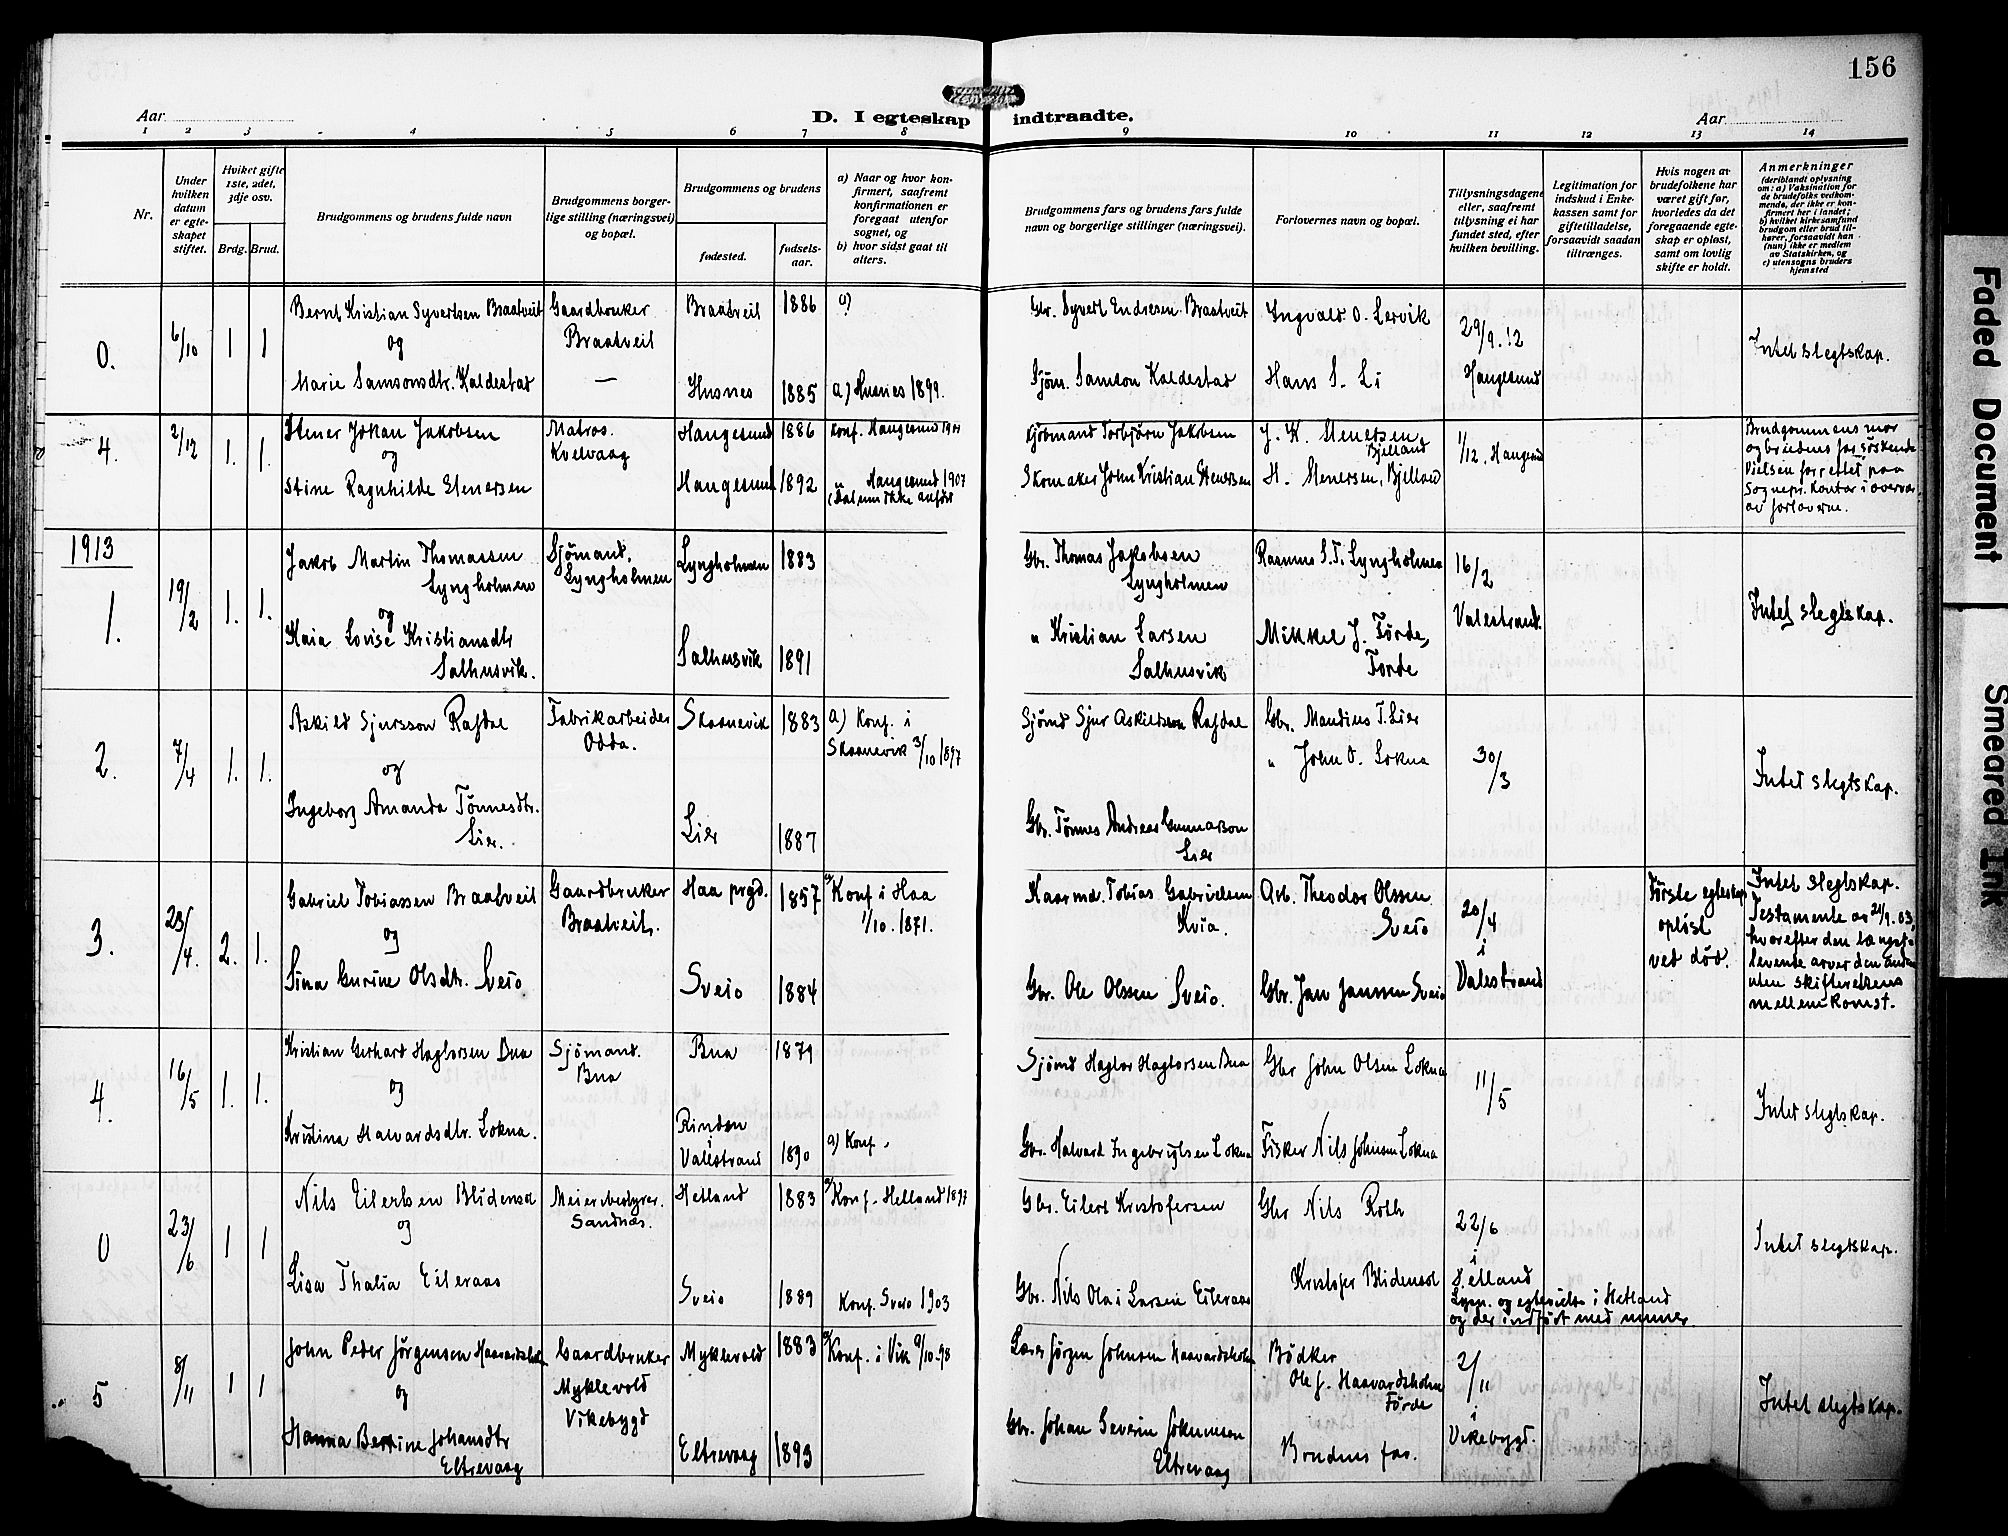 156
Aar
D. I egteskap indtraadte.
Aar
1 2 3 4 5 6 7 8 9 10 11 12 13 14
Nr.
Under hvilken datum er egteskapet stiftet.
Hvilket gifte 1ste, 2det, 3dje osv.
Brdg. Brud.
Brudgommens og brudens fulde navn
Brudgommens borgerlige stilling (næringsvei) og bopæl.
Brudgommens og brudens
fødested.
fødselsaar.
a) Naar og hvor konfirmert, saafremt konfirmationen er foregaat utenfor sognet, og
b) hvor sidst gaat til alters.
Brudgommens fars og brudens fars fulde navn og borgerlige stillinger (næringsvei).
Forlovernes navn og bopæl.
Tillysningsdagene eller, saafremt tillysning ei har fundet sted, efter hvilken bevilling.
Legitimation for indskud i Enkekassen samt for giftetilladelse, forsaavidt saadan tiltrænges.
Hvis nogen av brudefolkene har været gift før, hvorledes da det foregaaende egteskap er opløst, samt om lovlig skifte er holdt.
Anmerkninger
(deriblandt oplysning om: a) Vaksination for de brudefolks vedkommende, der ikke er konfirmert her i landet; b) hvilket kirkesamfund brudgom eller brud tilhører, forsaavidt han (hun) ikke er medlem av Statskirken, og c) utensogns bruders hjemsted
0. 6/10 1 1
Bernt Kristian Syvertsen Braatveit
og
Marie Samsonsdtr. Kaldestad
Gaardbruker
Braatveit
—
Braatveit 1886 a)
Husnes 1885 a) Husnes 1899.
Gbr. Syvert Endresen Braatveit
Sjøm. Samson Kaldestad
Ingvald O. Lervik
Hans S. Li
29/9.12
Haugesund
Intet slegtskap.
4. 2/12 1. 1.
Stener Johan Jakobsen
og
Stine Ragnhilde Stenersen
Matros.
Kvelvaag
Haugesund 1886 Konf. Haugesund 1901
Haugesund 1892 " Haugesund 1907
(Datum ikke anført
Sjømand Torbjørn Jakobsen
Skomaker John Kristian Stenersen
J. K. Stenersen, Bjelland
H. Stenersen, Bjelland
1/12. Haugesund
Brudgommens mor
og brudens far søskende
Vielsen forrettet paa
Sognepr. kontor i overvær
av forloverne.
1913
1. 19/2 1. 1.
Jakob Martin Thomassen
Lyngholmen
og
Kaia Lovise Kristiansdtr
Salhusvik.
Sjømand,
Lyngholmen
Lyngholmen 1883
Salhusvik 1891
Gbr. Thomas Jakobsen
Lyngholmen
" Kristian Larsen
Salhusvik
Rasmus S. T. Lyngholmen
Mikkel J. Førde,
Førde
16/2
Valestrand.
Intet slegtskap.
2. 7/4 1. 1.
Askild Sjursson Rafdal
og
Ingeborg Amanda Tønnesdtr.
Lier.
Fabrikarbeider
Odda.
Skaanevik 1883 a) Konf. i
Skaanevik 3/10 1897
Lier 1887
Sjømd Sjur Askildsen Rafdal
Gbr. Tønnes Andreas Gunnarson
Lier
Gbr. Mandius T. Lier
" John O. Lokna
30/3
Intet slegtskap.
3. 23/4. 2. 1.
Gabriel Tobiassen Braatveit
og
Sina Gurine Olsdtr. Sveio
Gaardbruker
Braatveit.
Haa prgd. 1857 a) Konf. i Haa
1/10. 1871.
Sveio 1884
Kaarmd. Tobias Gabrielsen
Kvia.
Gbr. Ole Olssen Sveio.
Arb. Theodor Olssen
Sveio
Gbr. Jan Jannsen Sveio
20/4
i
Valestrand
Første egteskap
opløst
ved død.
Intet slegtskap.
Testamente av 21/9. 03,
hvorefter den længst-
levende arver den anden
uten skifterettens
mellemkomst.
4. 16/5 1. 1.
Kristian Gerhard Hagtorsen Bua
og
Kristina Halvardsdtr. Lokna.
Sjømand.
Bua
Bua 1879
Rinden
i
Valestrand 1890 a) Konf.
Sjømd Hagtor Hagtorsen Bua
Gbr. Halvard Ingebrigtsen Lokna
Gbr John Olsen Lokna
Fisker Nils Johnsen Lokna
11/5
Intet slegtskap.
0 23/6 1 1
Nils Eilertsen Blidensol
og
Lisa Thalia Eileraas
Meieribestyrer.
Sandnæs.
Hetland 1883 a) Konf. Hetland 1897
Sveio 1889 Konf. Sveio 1903
Gbr. Eilert Kristofersen
Gbr. Nils Olai Larsen Eileraas
Gbr Nils Roth
Kristofer Blidensol
22/6
i
Hetland
Lysn. og egtevielse i Hetland
og der indført med numer.
Intet slegtskap.
5 8/11 1 1
John Peder Jørgensen Haavardsholm
og
Hanna Bertine Johansdtr
Eltrevaag
Gaardbruker
Myklevold
Vikebygd
Myklevold 1883 a) Konf. i Vik 9/10-98
Eltrevaag 1893
Lærer Jørgen Johnsen Haavardsholm
Gbr. Johan Severin Johannesen
Eltrevaag
Bødker
Ole J. Haavardsholm
Førde
Brudens far.
2/11
i
Vikebygd.
Intet slegtskap.
Faded Document
Smeared Ink